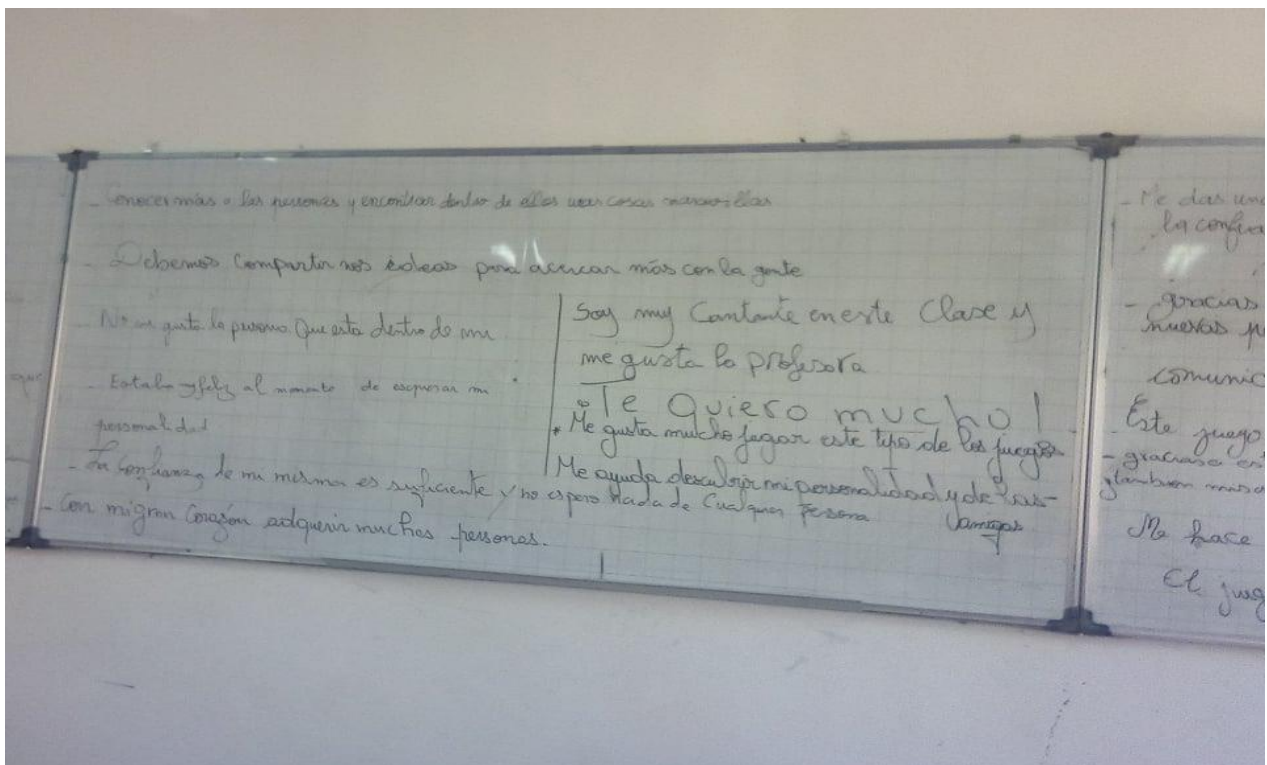 - Conocer más a las personas y encontrar dentro de ellas unas cosas maravillas
- Debemos Compartir nos ideas para acercar más con la gente
- No me gusta la persona Que esta dentro de mi
- Estaba feliz al momento de
personalidad
- La Confianza de mi misma es suficiente y no espero Nada de Cualquier Persona
- Con mi gran Corazón adquirir muchas personas.
Soy muy Cantante en este Clase y
me gusta la profesora
Te Quiero mucho!
* Me gusta mucho jugar este tipo de los juegos
Me ayuda descubrir mi personalidad y de las-
amigas
que
- Me das una
la confia
- gracias
nuevas p
comunic
Este juego
- gracias a es
tambien mis
Me hace
El jueg